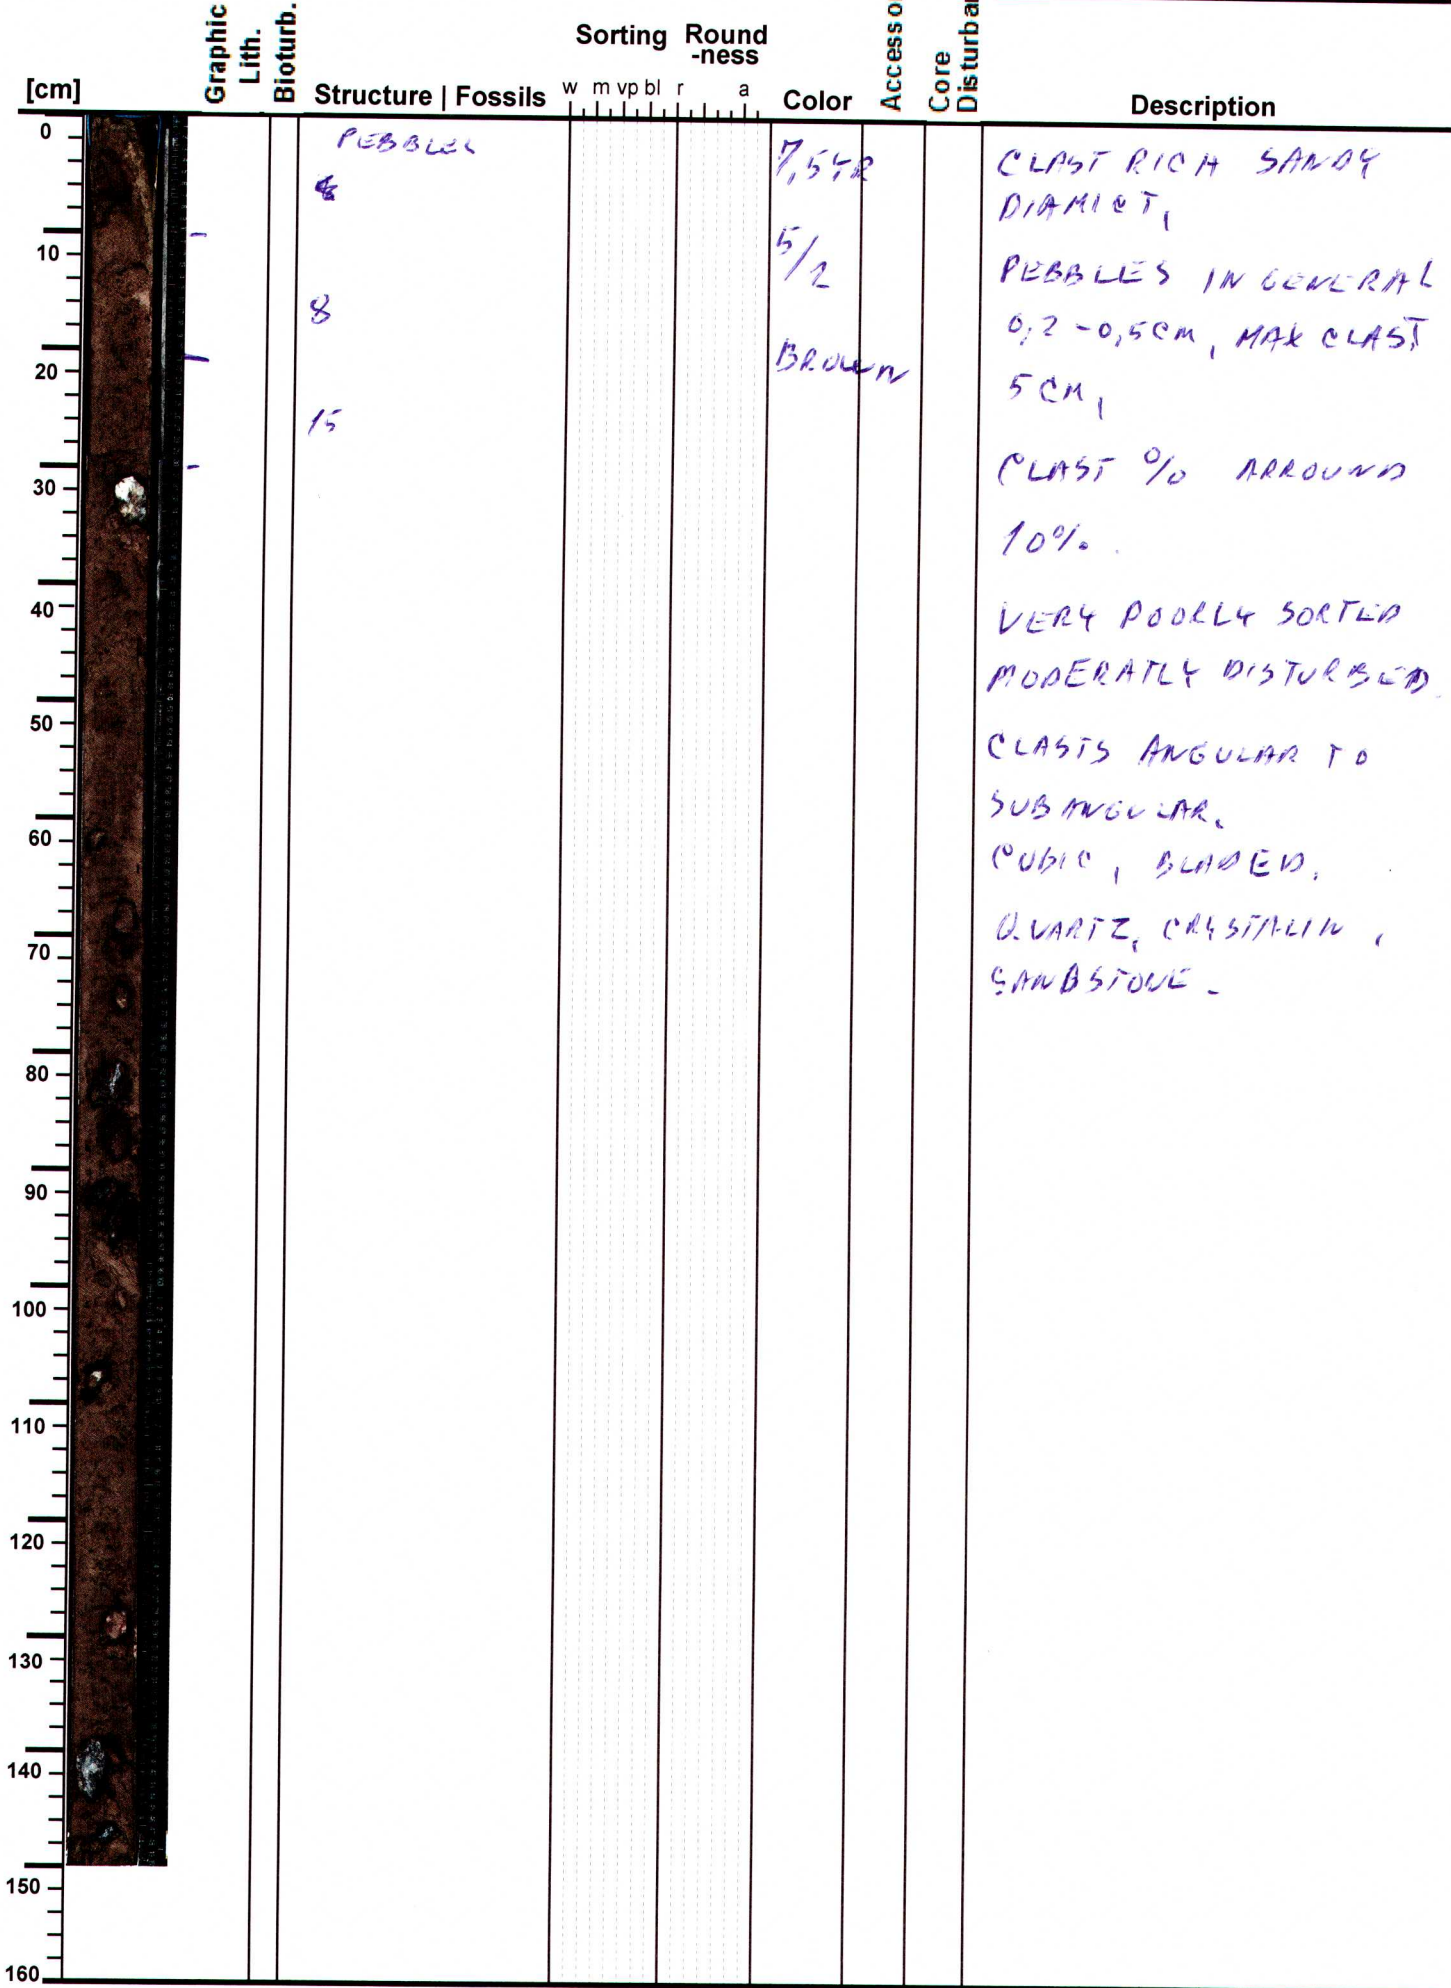 Graphic
Lith.
Bioturb.
Sorting Round
-ness
Accesso
Core
Disturba
[cm] Structure | Fossils w m vp bl r a Color Description
0
10
20
30
40
50
60
70
80
90
100
110
120
130
140
150
160
PEBBLES
8
15
7,5YR
5/2
BROWN
CLAST RICH SANDY
DIAMICT,
PEBBLES IN GENERAL
0,2 - 0,5 CM, MAX CLAST
5 CM,
CLAST % ARROUND
10%.
VERY POORLY SORTED
MODERATLY DISTURBED
CLASTS ANGULAR TO
SUBANGULAR.
CUBIC, BLADED.
QUARTZ, CRYSTALIN,
SANDSTONE.